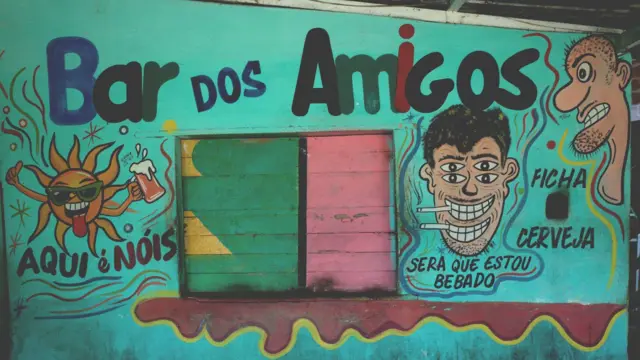 Bar DOS AmiGOS
AQUI é NÓIS
SERÁ QUE ESTOU
BEBADO
FICHA
CERVEJA